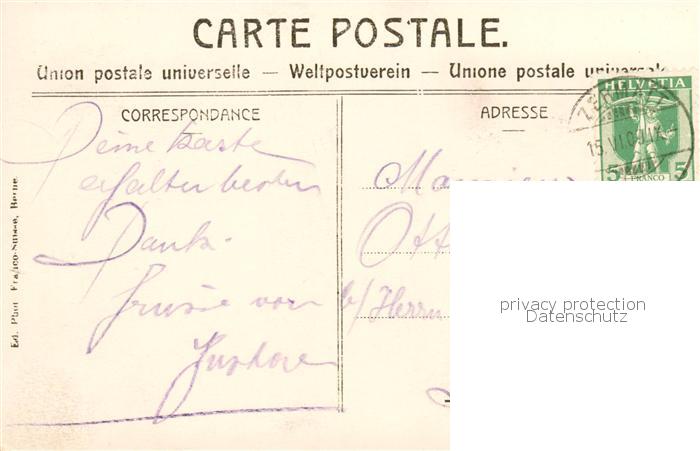 CARTE POSTALE.
Union postale universelle — Weltpostverein — Unione postale universale
HELVETIA
CORRESPONDANCE
ADRESSE
15.VI.0
5 FRANCO 5
Deine Karte
erhalten besten
Dank.
Grüsse von
Monsieur
Ott
b/ Herrn
Ed. Phot. Franco-Suisse, Berne.
privacy protection
Datenschutz